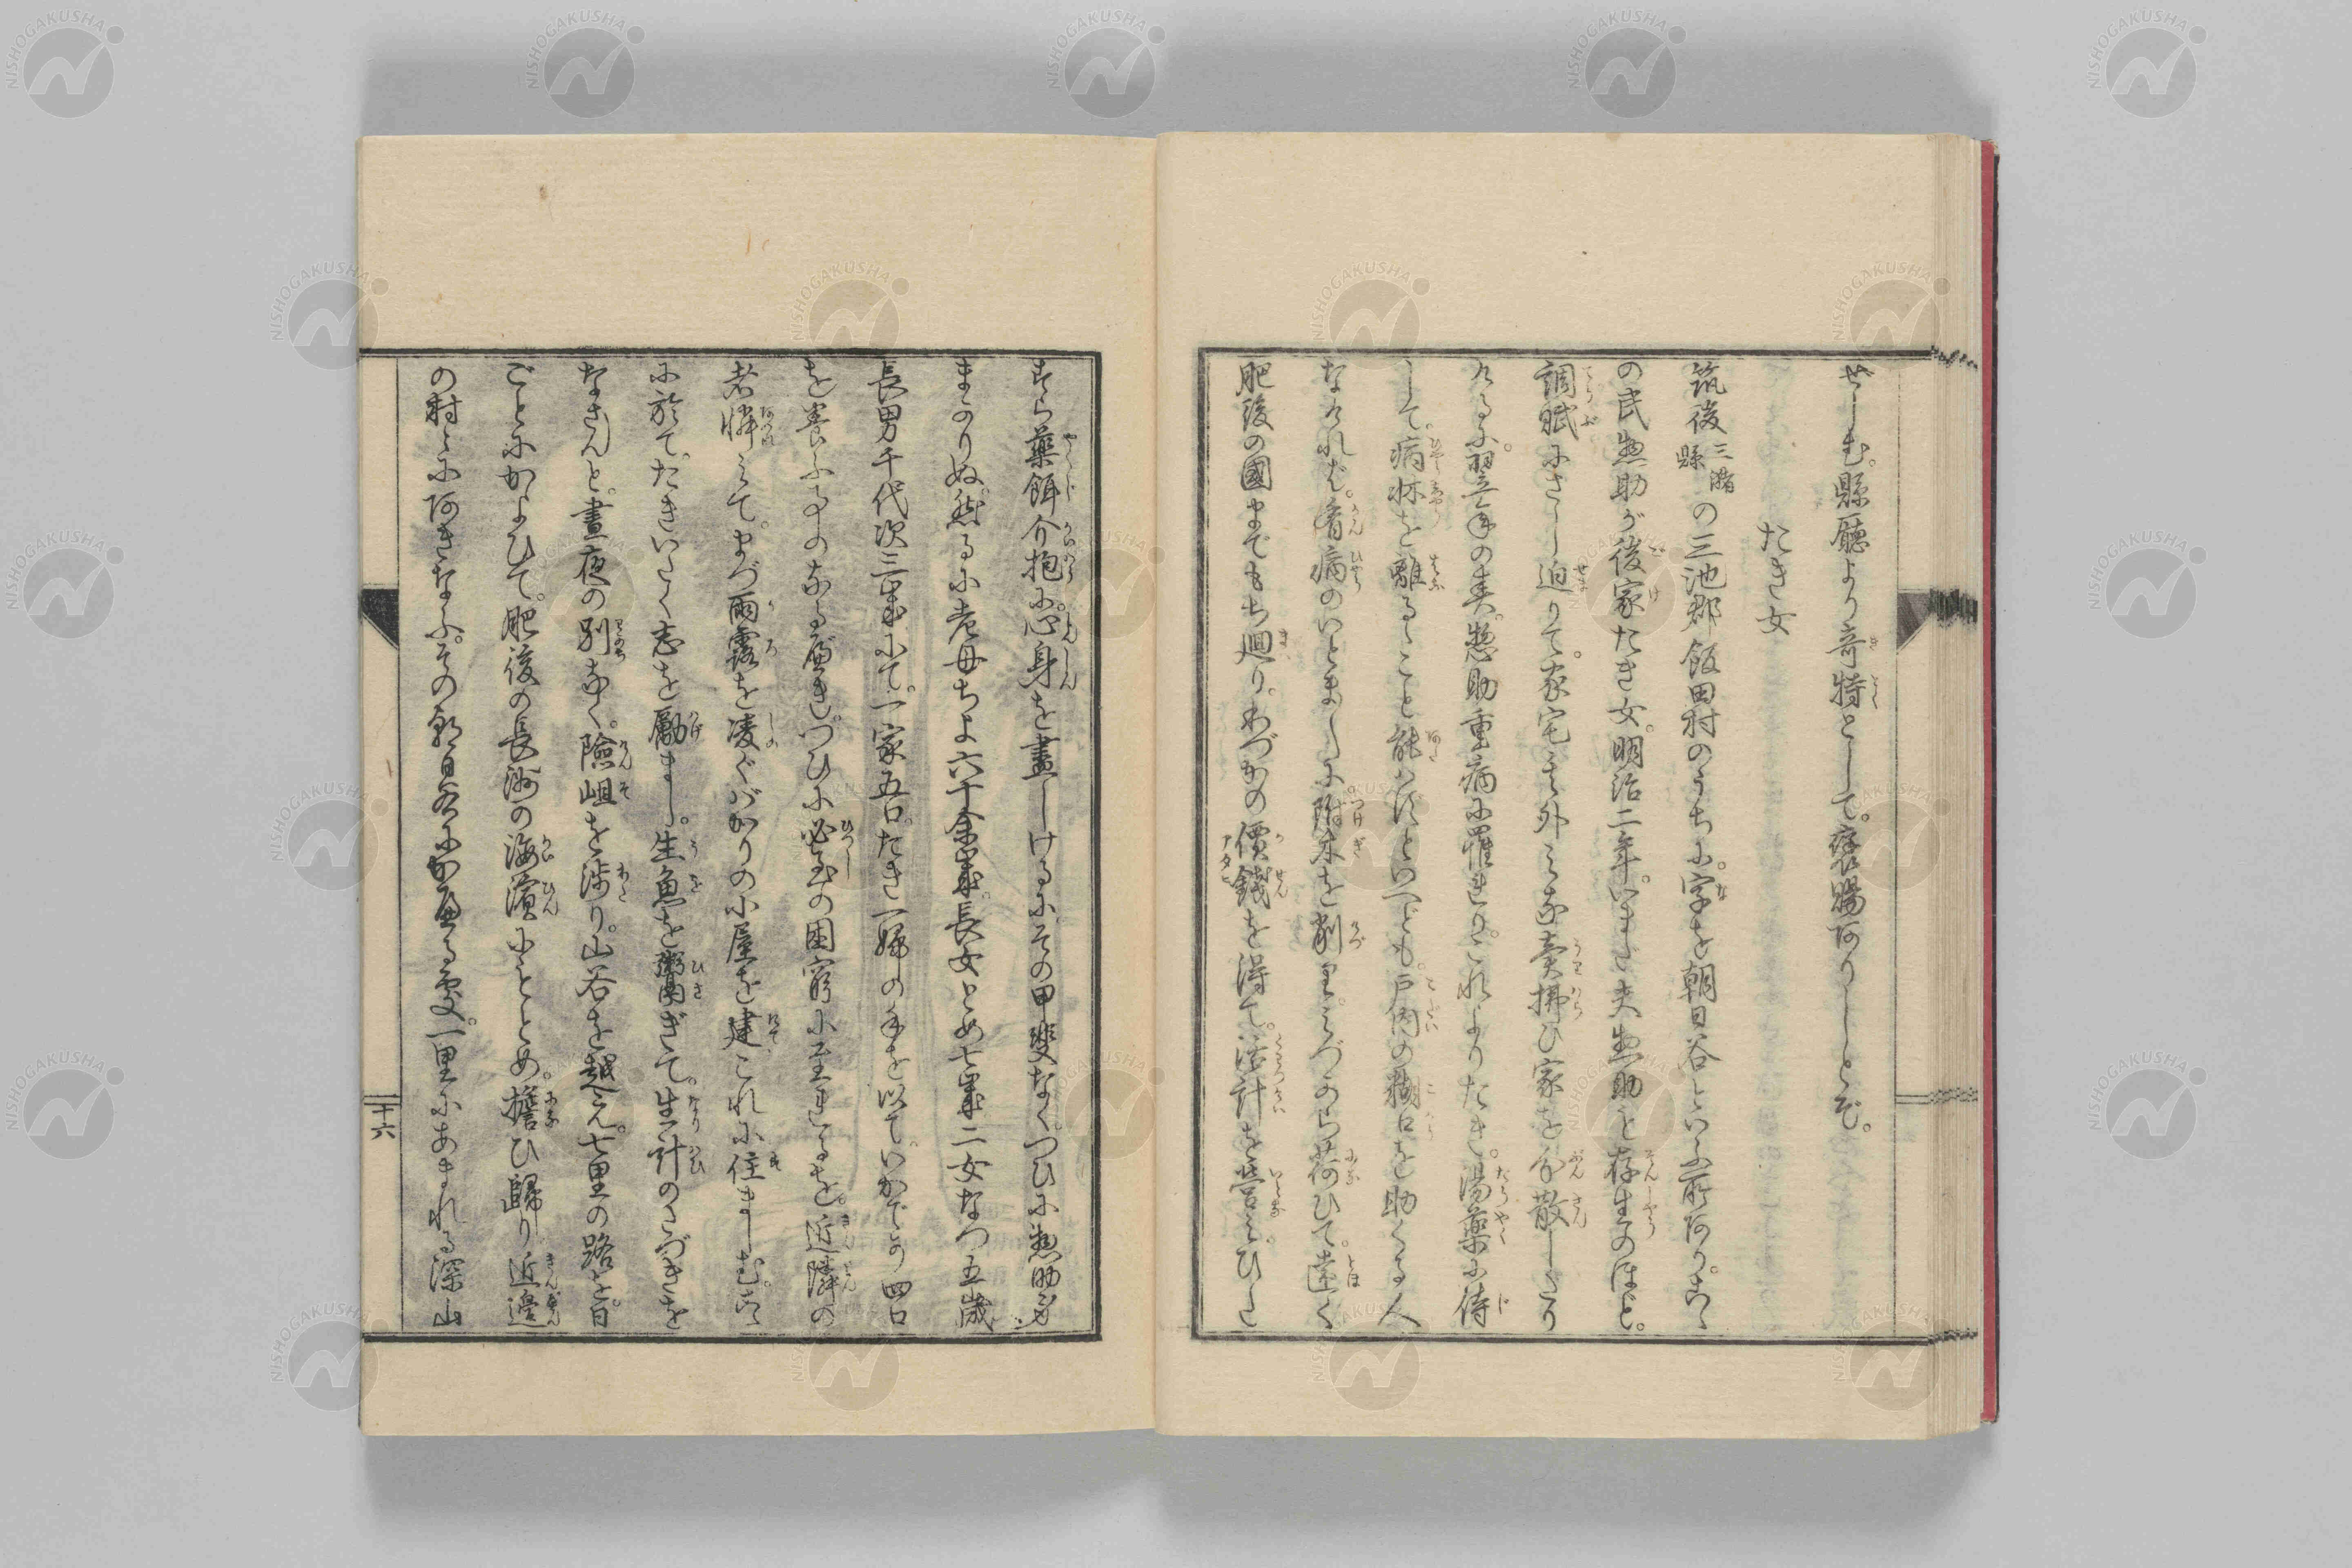 せしむ。縣廳より奇特として。褒賜ありしとぞ。
たき女
筑後三潴縣の三池郡飯田村のうちに。字を朝日谷といふ所あり。こゝ
の民惣助が後家たき女。明治二年。いまだ夫惣助も存生のほど。
調賦にさし迫りて。家宅その外みな賣拂ひ家を分散したり
けるに。翌年の春。惣助重病に罹れり。これよりたき。湯藥に侍
して。病牀を離るゝこと能はずといへども。戸内の糊口を助くる人
なければ。看病のいとましに。附木を削り。みづから荷ひて。遠く
肥後の國までもち廻り。わづかの價錢を得て。活計を營み。ひた
すら藥餌介抱に。心身を盡しけるに。その甲斐なく。つひに惣助みま
まかりぬ。然るに老母ちよ六十余歳。長女とめ七歳二女なつ五歳
長男千代次三歳にて。一家五口。たき一婦の手を以て。いかでか四口
を養ふ事のなるべき。つひに必至の困窮に至れるを。近隣の
者憐みて。まづ雨露を凌ぐばかりの小屋を建これに住ましむ。こゝ
に於て。たきいたく志を勵まし。生魚を鬻ぎて。生計のたづきを
なさんと。晝夜の別なく。險岨を渉り。山谷を越え。七里の路を。日
ごとにかよひて。肥後の長洲の海濱にもとめ。擔ひ歸り近邊
の村々にあきなふ。その朝日谷にかへる處。一里にあまれる深山
十六
NISHOGAKUSHA